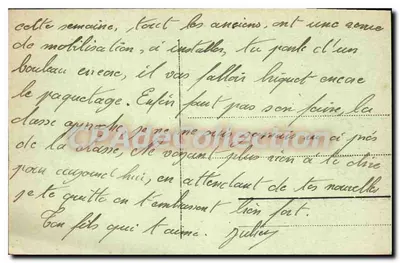 cette semaine, tout les anciens ont une revue
de mobilisation, a installer, tu parle d'un
bouleau encore, il vas falloir briquet encore
le paquetage. Enfin faut pas s'en faire, la
classe approche, je ne me suis jamais vu si près
de la classe, Ne voyant plus rien a te dire
pour aujourd'hui, en attendant de tes nouvelles
je te quitte en t'embrassant bien fort.
Ton fils qui t'aime. Julien
CPA-Collection